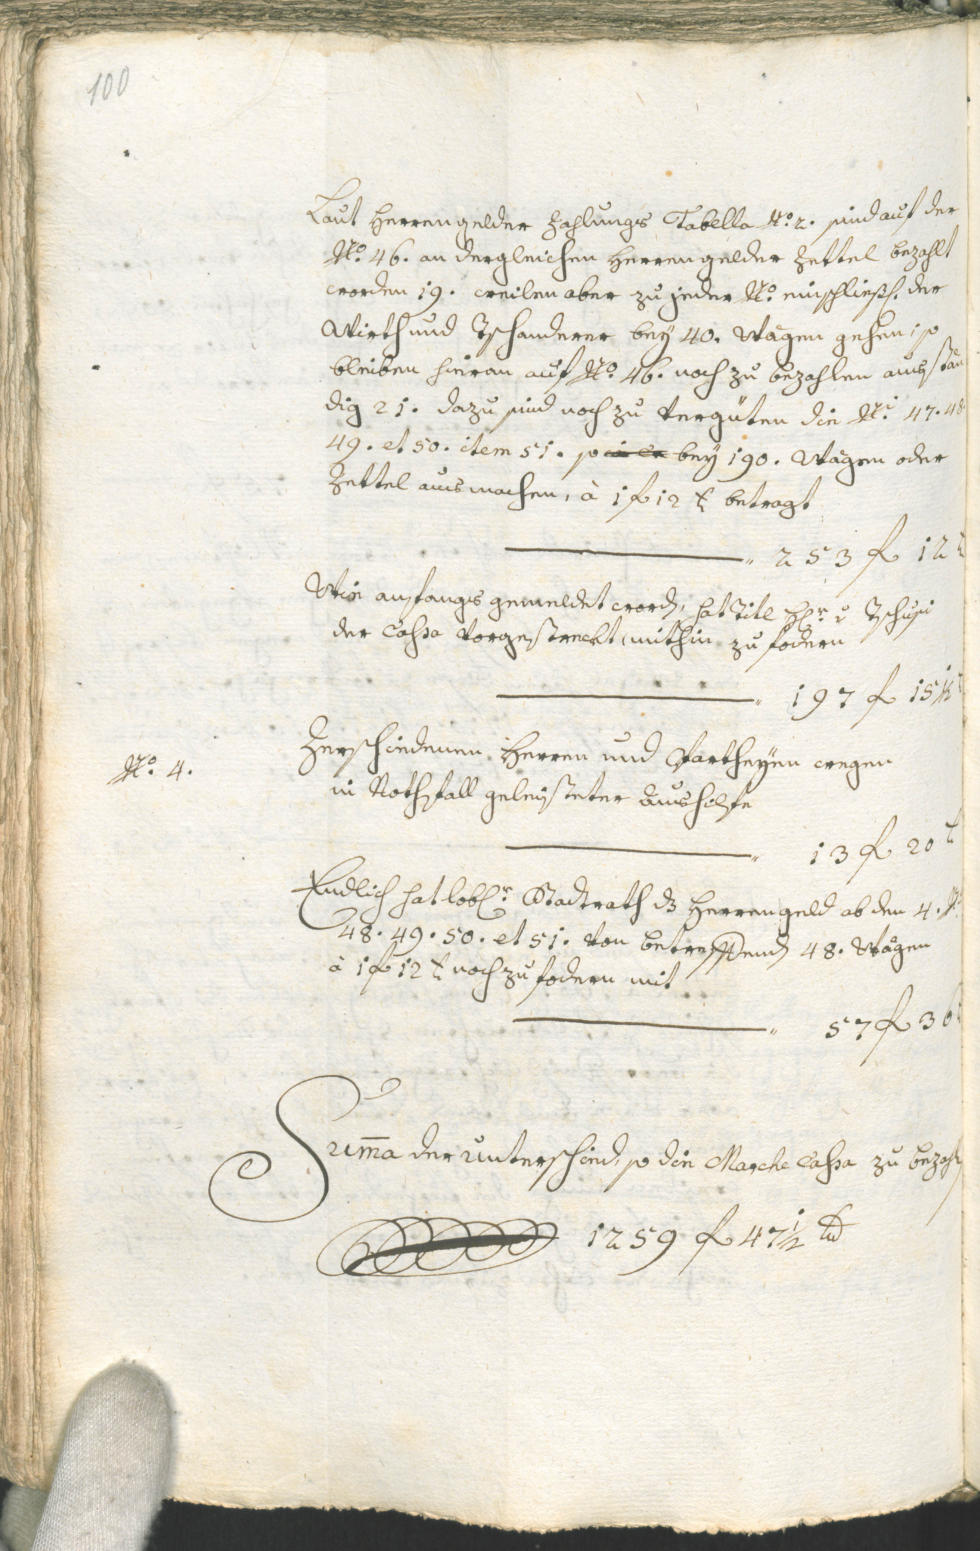 100
Laut Herrengelder Zahlungs Tabella No. 2. sind auf der
No. 46. an dergleichen Herrengelder Zettel bezahlt
worden 19. weilen aber zu jeder No. einschließl. der
Wirth und bey 40. Wägen gehen, so
bleiben hieran auf No. 46. noch zu bezahlen ausstän
dig 21. dazu sind noch zu vergüten die Ni 47. 48
49. et 50. item 51. so bey 190. Wägen oder
Zettel ausmachen, à 1 f 12 x betragt
253 f 12 x
Wie anfangs gemeldet word, hat Titl Hr. v Tschusi
der Cassa vorgestreckt, mithin zu fodern
197 f 15 1/2
No. 4.
Verschiedenen Herren und Partheyen wegen
in Nothfall geleysteter Aushilfe
13 f 20 x
Endlich hat lobl. Stadtrath ds Herrengeld ab den 4. No
48. 49. 50. et 51. von betreffend 48. Wägen
à 1 f 12 x noch zu fodern mit
57 f 36
Summa der unterschied, so die Marche Cassa zu bezahl
1259 f 47 1/2 x